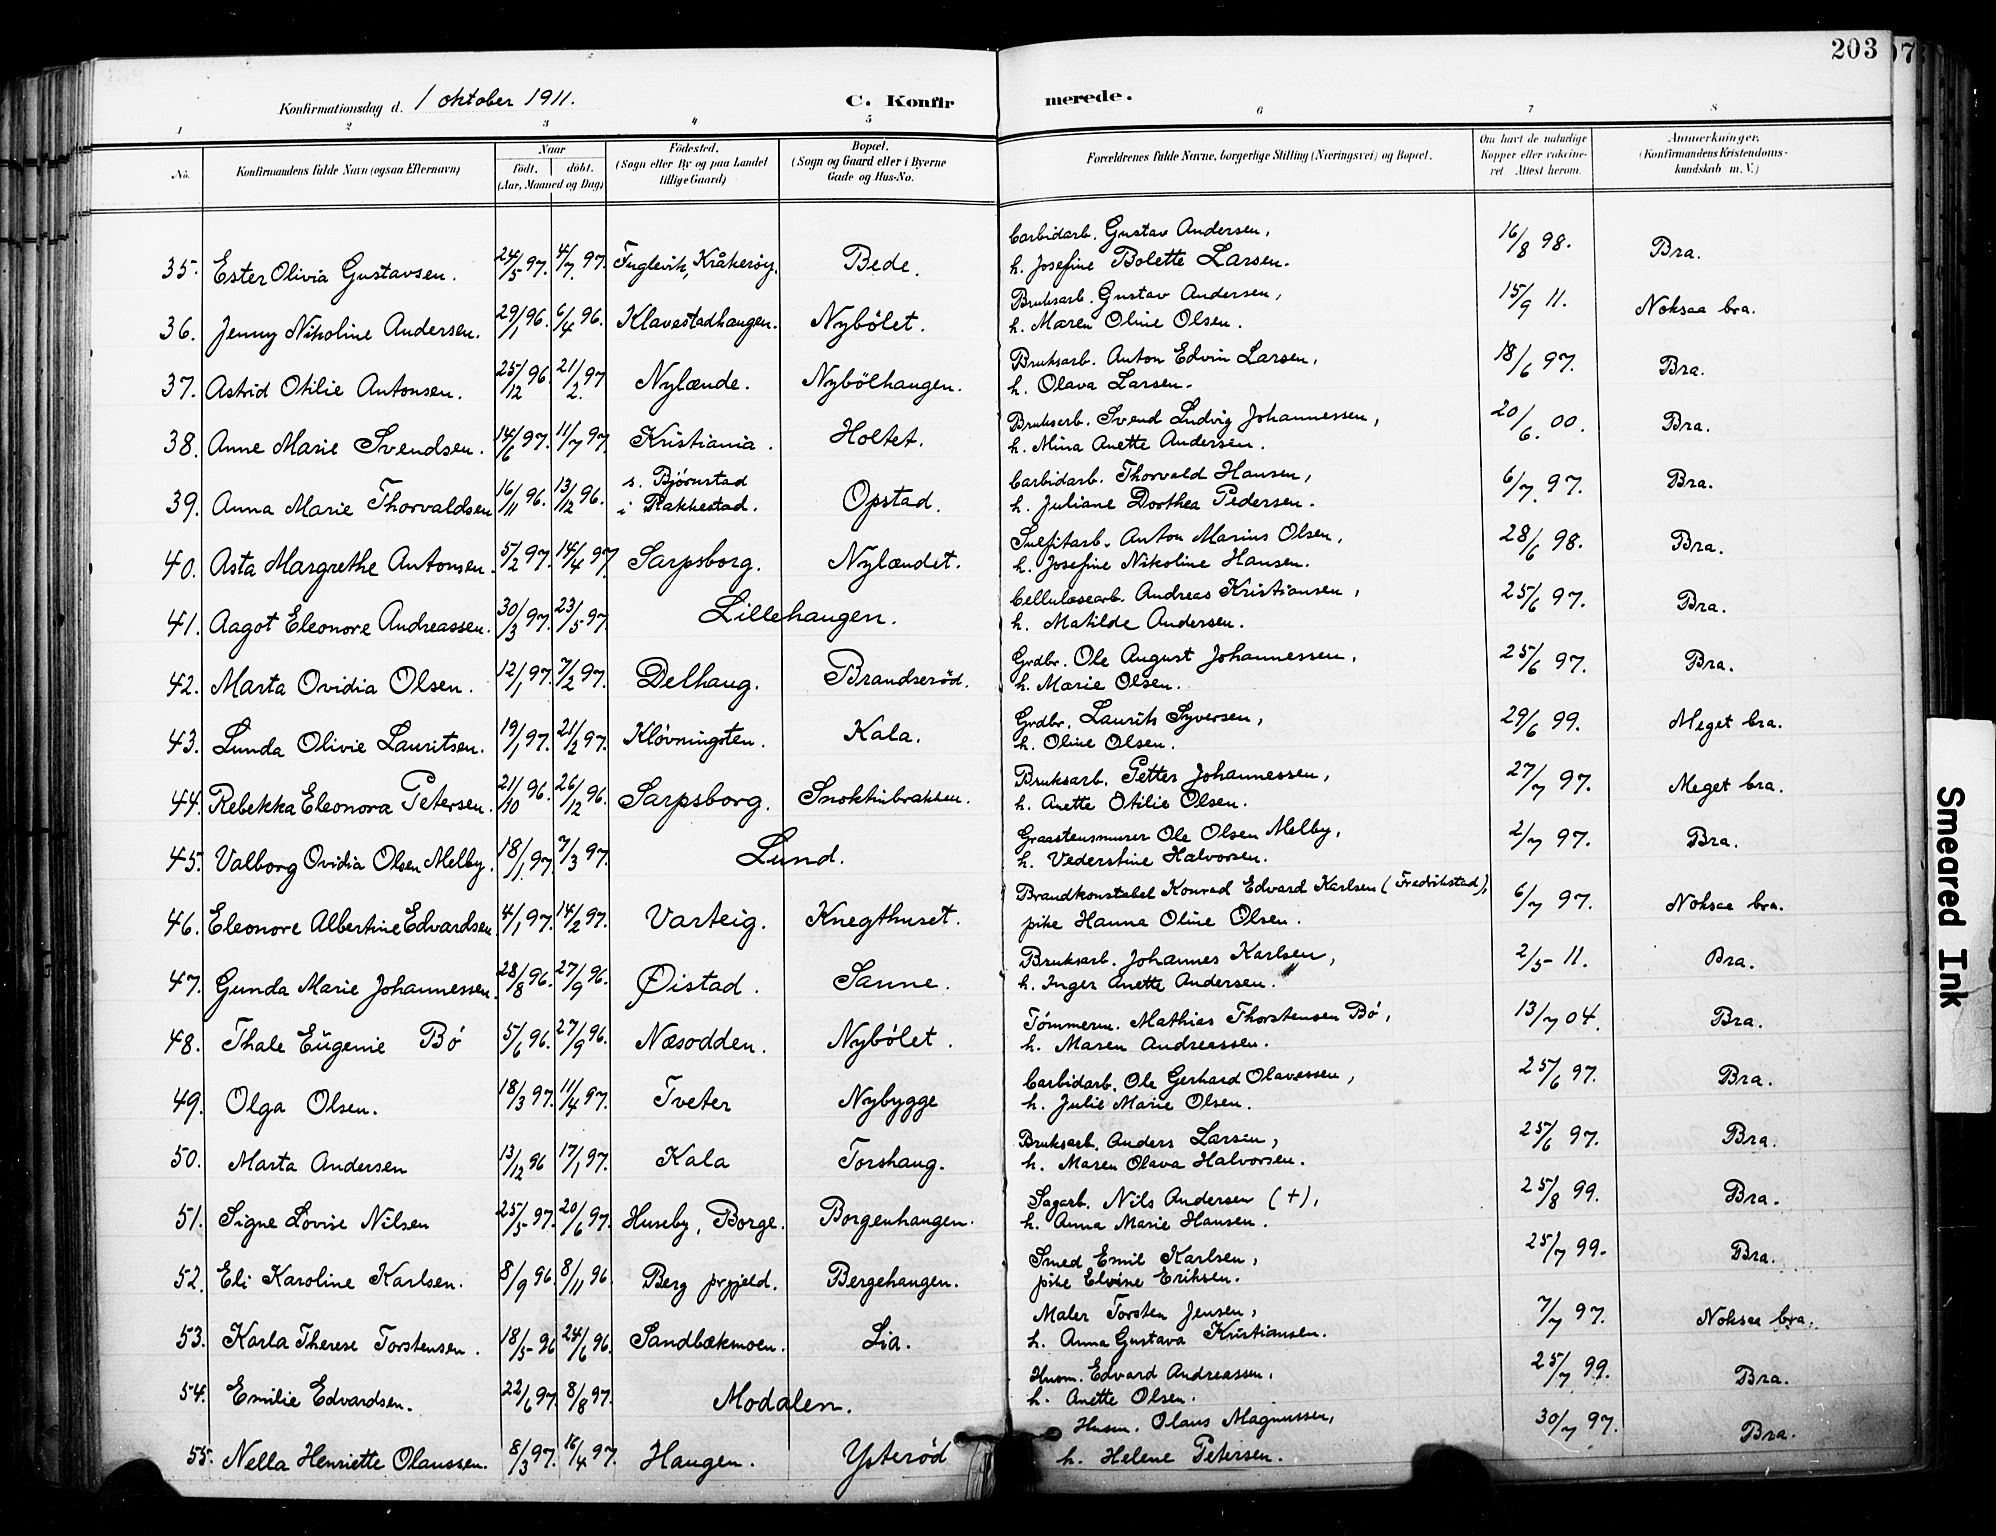 203
Konfirmationsdag d. 1 oktober 1911. C. Konfirmerede.
1 2 3 4 5 6 7 8
No. Konfirmandens fulde Navn (ogsaa Efternavn) Naar født. døbt. (Aar, Maaned og Dag) Fødested. (Sogn eller By og paa Landet tillige Gaard) Bopæl. (Sogn og Gaard eller i Byerne Gade og Hus-No. Forældrenes fulde Navne, borgerlige Stilling (Næringsvei) og Bopæl. Om havt de naturlige Kopper eller vaccineret. Attest herom. Anmerkninger. (Konfirmandens Kristendomskundskab m. V.)
35. Ester Olivia Gustavsen. 24/5 97. 4/7 97. Fuglevik, Kråkerøy. Bede. Carbidarb. Gustav Andersen, h. Josefine Bolette Larsen. 16/8 98. Bra.
36. Jenny Nikoline Andersen. 29/1 96. 6/4 96. Klavestadhaugen. Nybölet. Bruksarb. Gustav Andersen, h. Maren Oline Olsen. 15/9 11. Noksaa bra.
37. Astrid Otilie Antonsen. 25/12 96. 21/2 97. Nylænde. Nybölhaugen. Bruksarb. Anton Edvin Larsen, h. Olava Larsen. 18/6 97. Bra.
38. Anne Marie Svendsen. 14/6 97. 11/7 97. Kristiania. Holtet. Bruksarb. Svend Ludvig Johannessen, h. Mina Anette Andersen. 20/6. 00. Bra.
39. Anna Marie Thorvaldsen 16/11 96. 13/12 96. s. Bjørnstad i Rakkestad. Opstad. Carbidarb. Thorvald Hansen, h. Juliane Dorthea Pedersen. 6/7. 97. Bra.
40. Asta Margrethe Antonsen. 5/2 97. 14/4 97. Sarpsborg. Nylændet. Sulfitarb. Anton Marius Olsen, h. Josefine Nikoline Hansen. 28/6 98. Bra.
41. Aagot Eleonore Andreassen. 30/3 97. 23/5 97. Lillehaugen. Cellulosearb. Andreas Kristiansen, h. Matilde Andersen. 25/6 97. Bra.
42. Marta Ovidia Olsen. 12/1 97. 7/2 97. Delhaug. Brandserød. Grdbr. Ole August Johannessen, h. Marie Olsen. 25/6 97. Bra.
43. Lunda Olivie Lauritsen. 19/1 97. 21/2 97. Kløvningsten. Kala. Grdbr. Laurits Syversen, h. Oline Olsen. 29/6 99. Meget bra.
44. Rebekka Eleonora Petersen. 21/10 96. 26/12 96. Sarpsborg. Snoktinbrakken. Bruksarb. Petter Johannessen, h. Anette Otilie Olsen. 27/7 97. Meget bra.
45. Valborg Ovidia Olsen Melby. 18/1 97. 7/3 97. Lund. Graastensmurer Ole Olsen Melby, h. Vederstine Halvorsen. 2/7 97. Bra.
46. Eleonore Albertine Edvardsen 4/1 97. 14/2 97. Varteig. Knegthuset. Brandkonstabel Konrad Edvard Karlsen (Fredrikstad), pike Hanna Oline Olsen. 6/7 97. Noksaa bra.
47. Gunda Marie Johannessen. 28/8 96. 27/9 96. Øistad. Sanne. Bruksarb. Johannes Karlsen, h. Inger Anette Andersen. 2/5 11. Bra.
48. Thale Eugenie Bö 5/6 96. 27/9 96. Næsodden. Nybölet. Tømmerm. Mathias Thorstensen Bö, h. Maren Andreassen. 13/7 04. Bra.
49. Olga Olsen. 18/3 97. 11/4 97. Tveter Nybygge Carbidarb. Ole Gerhard Olavessen, h. Julie Marie Olsen. 25/6 97. Bra.
50. Marta Andersen 13/12 96 17/1 97. Kala Torshaug. Bruksarb. Anders Larsen, h. Maren Olava Halvorsen. 25/6 97. Bra.
51. Signe Lovise Nilsen 25/5 97. 20/6 97. Huseby, Borge. Borgenhaugen. Sagarb. Nils Andersen (+), h. Anna Marie Hansen. 25/8 99. Bra.
52. Eli Karoline Karlsen. 8/9 96. 8/11 96. Berg prgjeld. Bergehaugen. Smed Emil Karlsen, pike Elvine Eriksen. 25/7 99. Bra.
53. Karla Therese Torstensen. 18/5 96 24/6 96. Sandbækmoen. Lia. Maler Torsten Jensen, h. Anna Gustava Kristiansen. 7/7 97. Noksaa bra.
54. Emilie Edvardsen. 22/6 97. 8/8 97. Modalen. Husm. Edvard Andreassen, h. Anette Olsen. 25/7 99. Bra.
55. Nella Henriette Olaussen. 8/3 97. 16/4 97. Haugen. Ysterød Husm. Olaus Magnussen, h. Helene Petersen. 30/7 97. Bra.
Smeared Ink